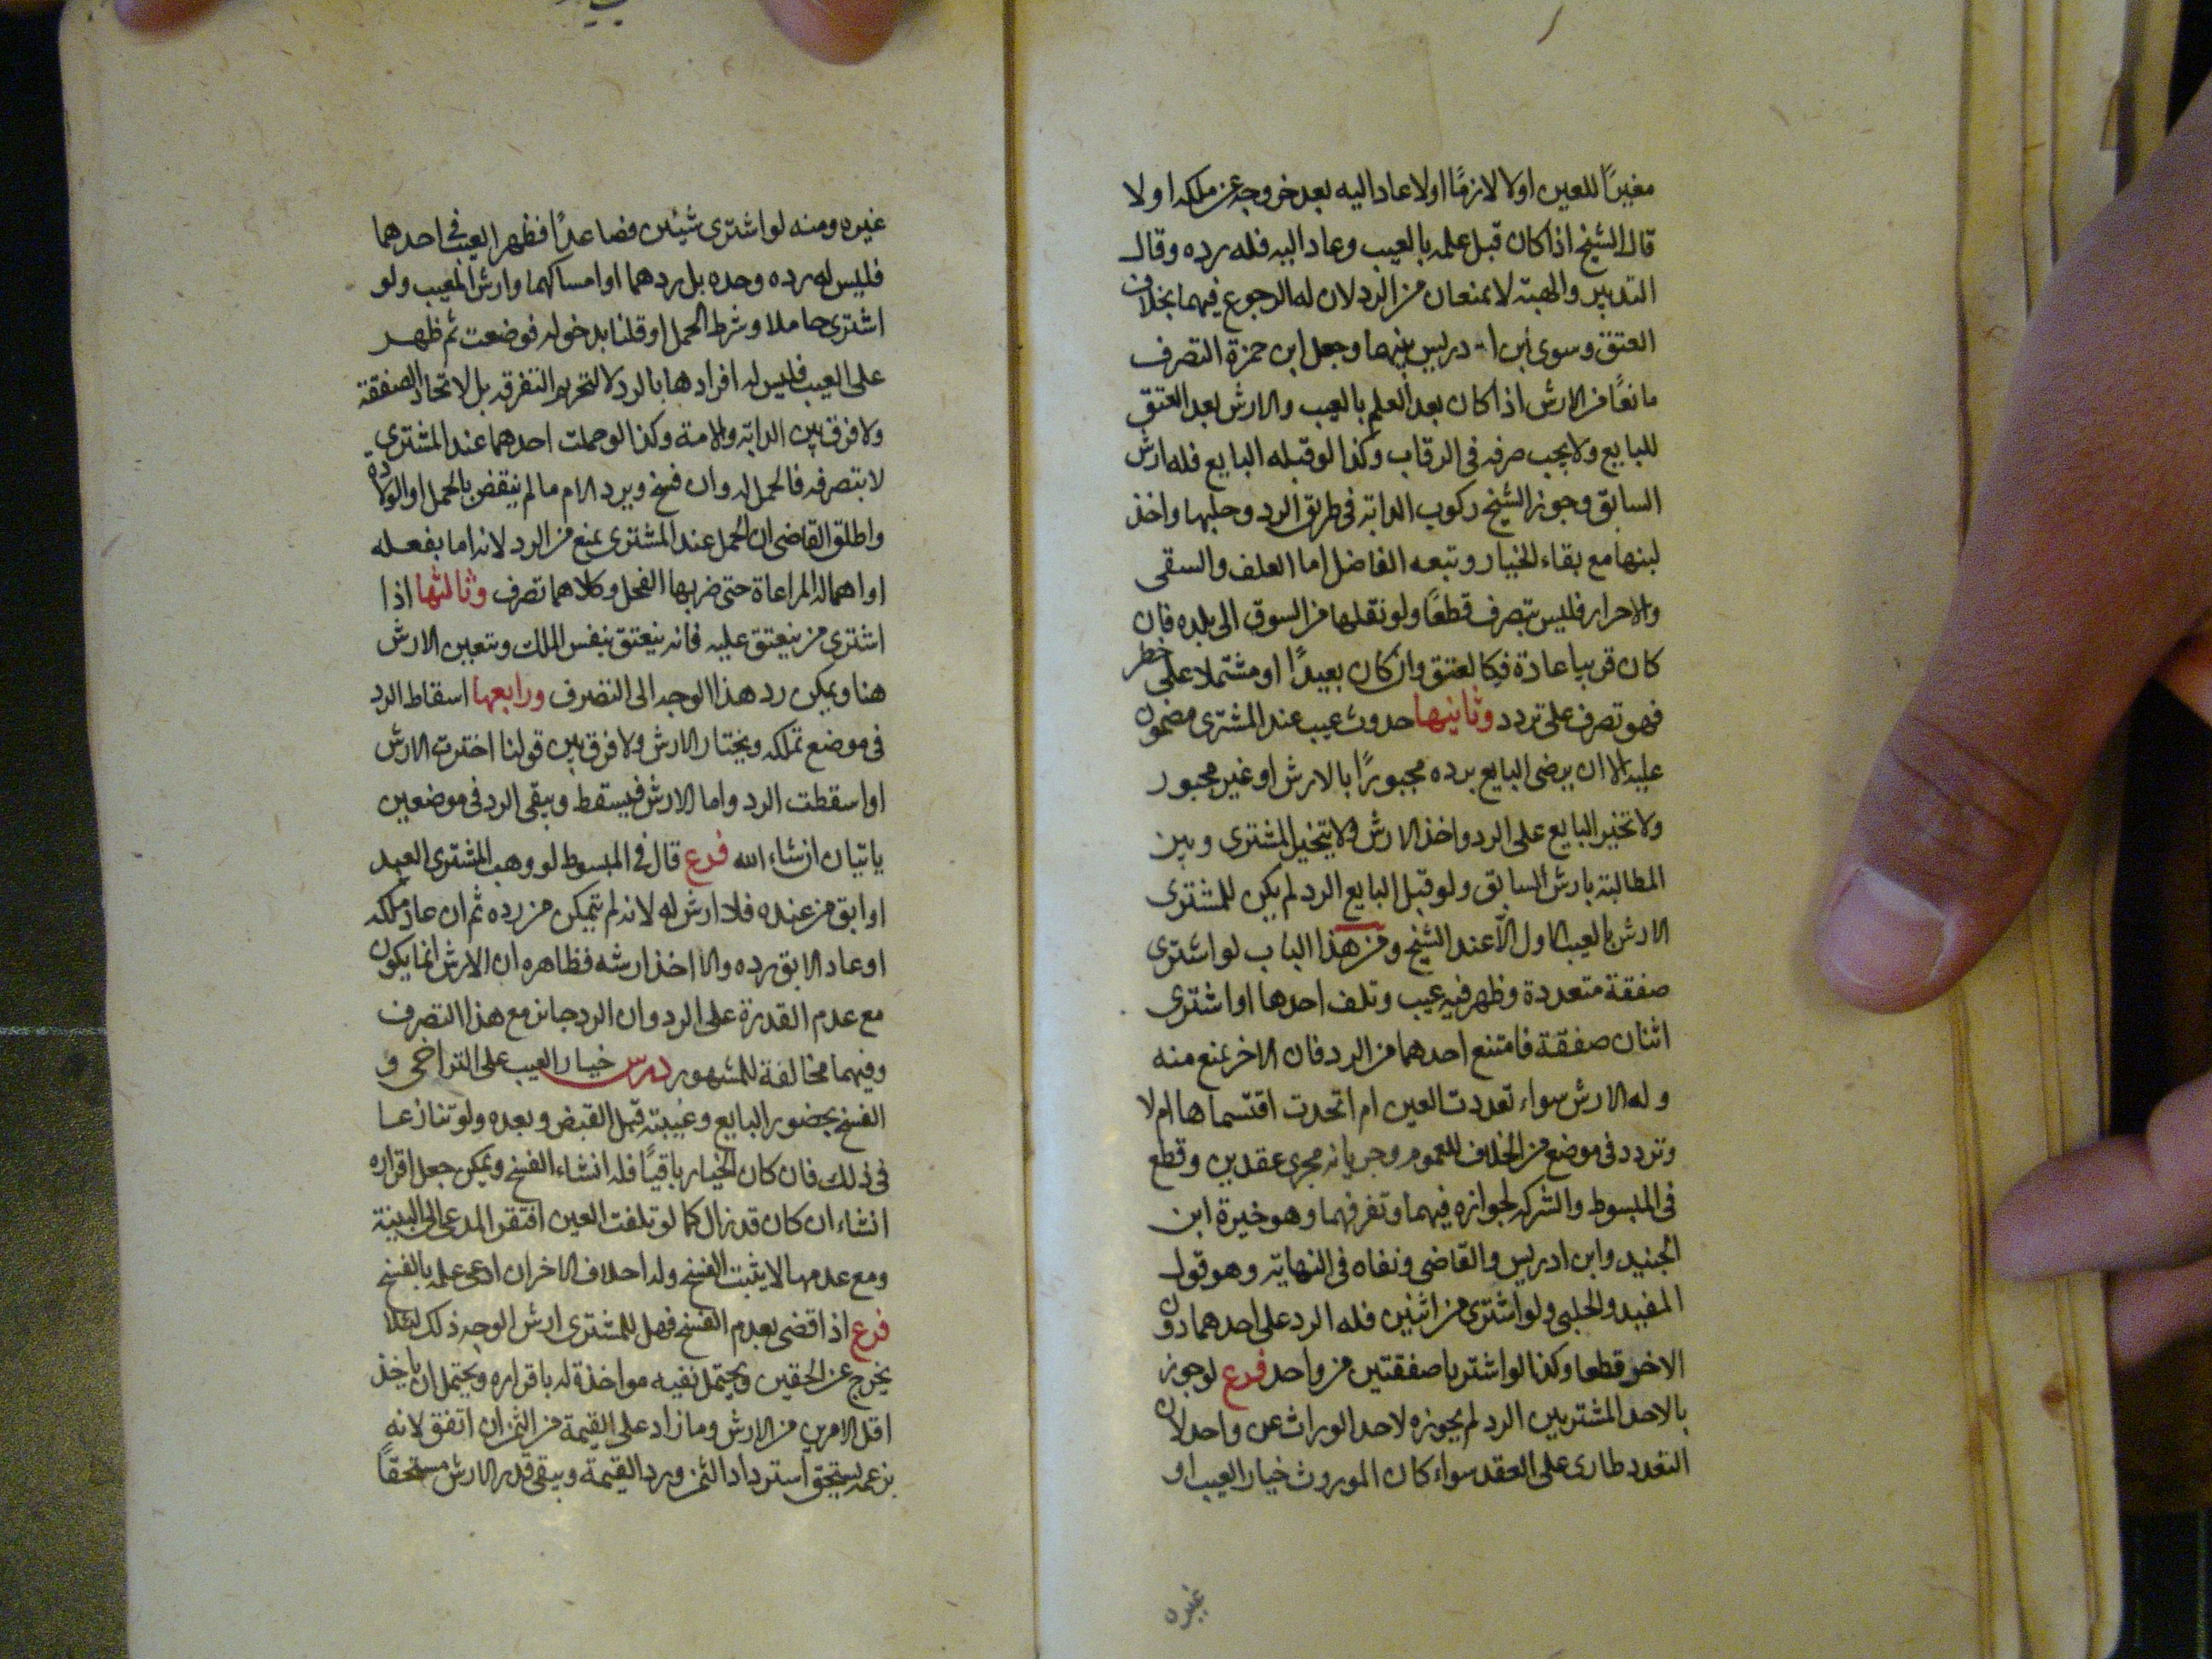 مغيرًا للعين اولا لازمًا اولا عاد اليه بعد خروجه عن ملكه اولا
قال الشيخ اذا كان قبل علمه بالعيب وعاد اليه فله رده وقال
التدبير والهبة لا يمنعان من الرد لان له الرجوع فيهما بخلاف
العتق وسوى ابن ادريس بينهما وجعل ابن حمزة التصرف
مانعًا من الارش اذا كان بعد العلم بالعيب والارش بعد العتق
للبايع ولا يجب صرفه فى الرقاب وكذا لو قبله البايع فله ارش
السابق وجوز الشيخ ركوب الدابة فى طريق الرد وحلبها واخذ
لبنها مع بقاء الخيار وتبعه الفاضل اما العلف والسقى
والاحراز فليس بتصرف قطعًا ولو نقلها من السوق الى بلده فان
كان قريبا عادة فكالعتق وان كان بعيدًا او مشتملا على خطر
فهو تصرف على تردد وثانيها حدوث عيب عند المشترى مضمون
عليه الا ان يرضى البايع برده مجبورًا بالارش او غير مجبور
ولا تخير البايع على الرد واخذ الارش ولا يتخير المشترى وبين
المطالبة بارش السابق ولو قبل البايع الرد لم يكن للمشترى
الارش بالعيب الاول الا عند الشيخ ومن هذا الباب لو اشترى
صفقة متعددة وظهر فيه عيب وتلف احدها او اشترى
اثنان صفقة فامتنع احدهما من الرد فان الاخر يمنع منه
وله الارش سواء تعددت العين ام اتحدت اقتسماها ام لا
وتردد فى موضع من الخلاف للعموم وجريانه مجرى عقدين وقطع
فى المبسوط والشركة لجوازه فيهما وتفرقهما وهو خيرة ابن
الجنيد وابن ادريس والقاضى ونفاه فى النهاية وهو قول
المفيد والحلبى ولو اشترى من اثنين فله الرد على احدهما دون
الاخر قطعا وكذا لو اشتريا صفقتين من واحد فرع لو جوز
بالاحد المشتريين الرد لم يجوزه لاحد الوراث عن واحد لان
التعدد طارى على العقد سواء كان الموروث خيار العيب او
غيره
غيره ومنه لو اشترى شيئين فصاعدًا فظهر العيب فى احدهما
فليس له رده وحده بل ردهما او امساكهما وارش المعيب ولو
اشترى حاملا وشرط الحمل او قلنا بدخوله فوضعت ثم ظهر
على العيب فليس له افرادها بالرد لا لتحريم التفرقه بل لاتحاد الصفقة
ولا فرق بين الدابة والامة وكذا لو حملت احدهما عند المشترى
لا بتصرفه فالحمل له وان فسخ ويرد الام ما لم ينقض بالحمل او الولادة
واطلق القاضى ان الحمل عند المشترى يمنع من الرد لانه اما بفعله
او اهماله المراعاة حتى ضربها الفحل وكلاهما تصرف وثالثها اذا
اشترى من ينعتق عليه فانه ينعتق بنفس الملك ويتعين الارش
هنا ويمكن رد هذا الوجه الى التصرف ورابعها اسقاط الرد
فى موضع تملكه ويختار الارش ولا فرق بين قولنا اخترت الارش
او اسقطت الرد واما الارش فيسقط ويبقى الرد فى موضعين
ياتيان انشاء الله فرع قال فى المبسوط لو وهب المشترى العبد
او ابق من عنده فلا ارش له لانه لم يتمكن من رده ثم ان عاد ملكه
او عاد الابق رده والا اخذ ارشه فظاهره ان الارش انما يكون
مع عدم القدرة على الرد وان الرد جائز مع هذا التصرف
وفيهما مخالفة للمشهور درس خيار العيب على التراخى و
الفسخ بحضور البايع وغيبته قبل القبض وبعده ولو تنازعا
فى ذلك فان كان الخيار باقيًا فله انشاء الفسخ ويمكن جعل اقراره
انشاء ان كان قد زال كما لو تلفت العين افتقر المدعى الى البينة
ومع عدمها لا يثبت الفسخ وله احلاف الاخر ان ادعى علمه بالفسخ
فرع اذا قضى بعدم الفسخ فهل للمشترى ارش الوجه ذلك لئلا
يخرج عن الحقين ويحتمل نفيه مواخذة له باقراره ويحتمل ان ياخذ
اقل الامرين من الارش وما زاد على القيمة من الثمن ان اتفق لانه
بزعمه يستحق استرداد الثمن ورد القيمة ويبقى قدر الارش مستحقًا